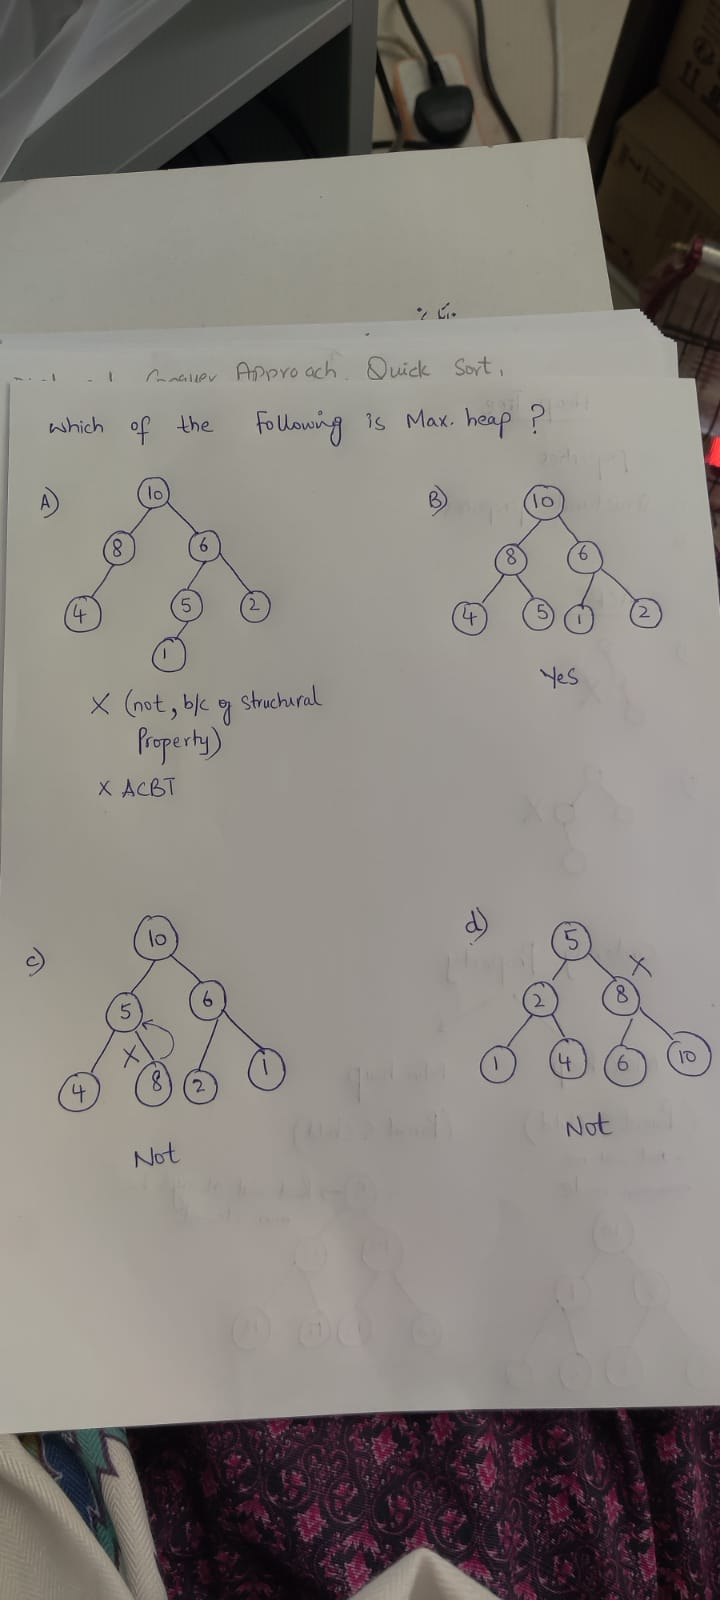 Approach. Quick Sort,
which of the Following is Max. heap ?
A)
10
8 6
4 5 2
1
X (not, b/c of structural
Property)
X ACBT
B)
10
8 6
4 5 1 2
Yes
c)
10
5 6
X
4 8 2 1
Not
d)
5
X
2 8
1 4 6 10
Not